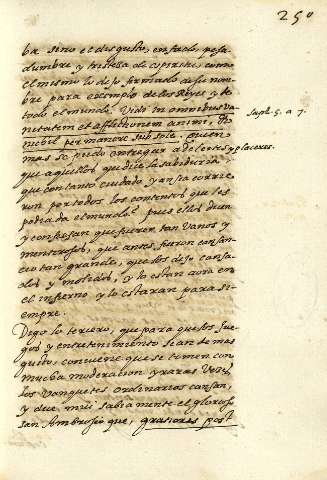 250
ba sino el desgusto, enfado, pesa
dumbre y tristeza de espiritu, como
el mismo lo dejo firmado de su nom
bre para exemplo de los Reyes y de
todo el mundo. Vidi in omnibus va
nitatem et afflictionem animi, et
nihil permanere sub sole. Quien
mas se pudo entregar a deleites y placeres.
que aquellos que dice la sabiduria
que con tanto cuidado y ansia corrie
ron por todos los contentos que les
podia dar el mundo? pues ellos dicen
y confiesan que fueron tan vanos y
mentirosos, que antes fueron cansan
cio tan grande, que los dejo cansa
dos y molidos, y lo estan aora en
el infierno y lo estaran para si
empre.
Digo lo tercero, que para que los jue
gos y entretenimiento sean de mas
gusto, conviene que se tomen con
mucha moderacion y raras vezes,
los vanquetes ordinarios cansan,
y dice mui sabiamente el glorioso
san Ambrosio que, gratiores post
Sapie. 5. a 7.